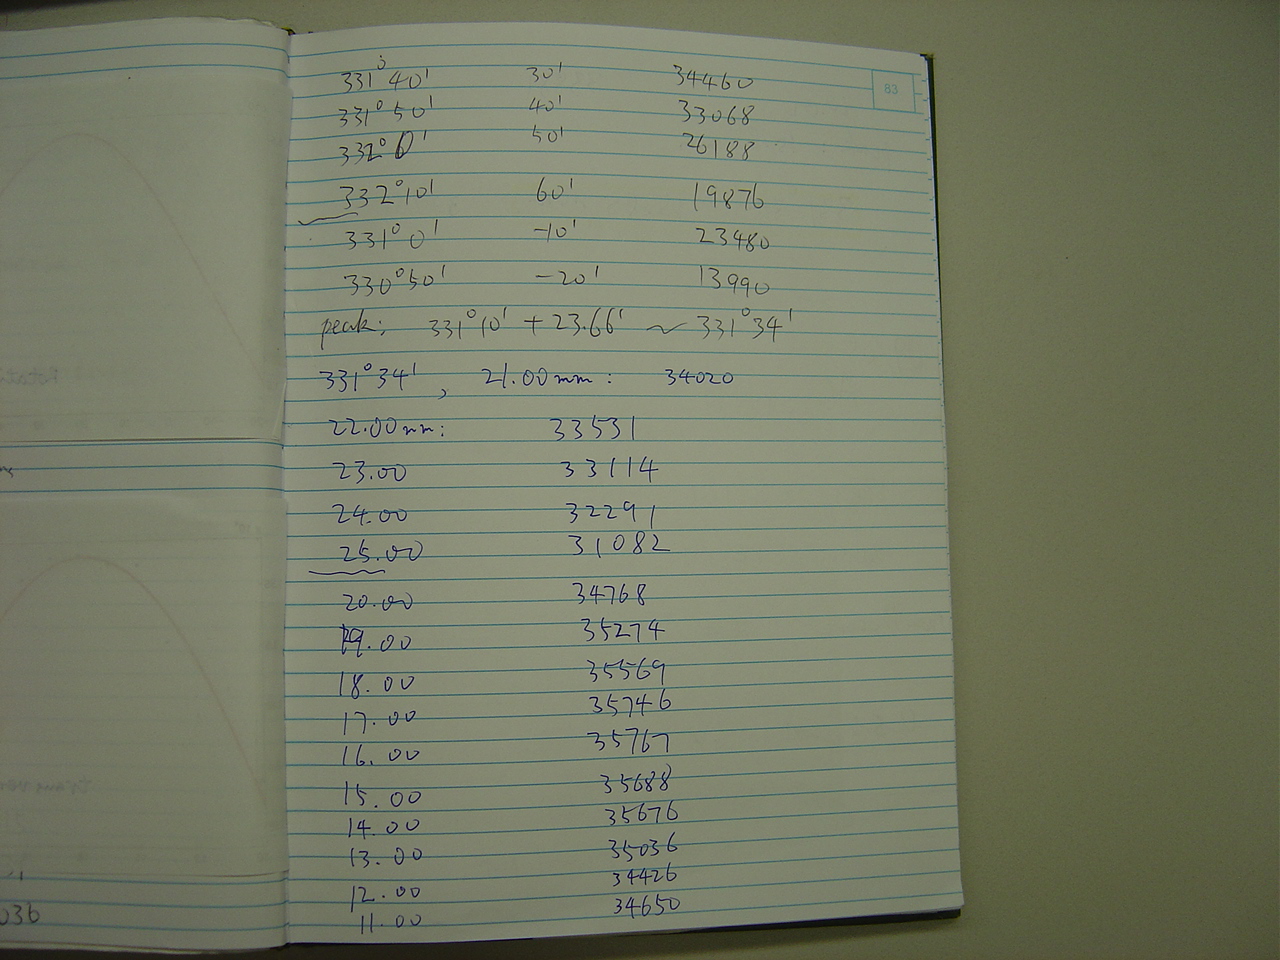 331°40' 30' 34460
83
331°50' 40' 33068
332°0' 50' 26188
332°10' 60' 19876
331°0' -10' 23480
330°50' -20' 13990
peak: 331°10' + 23.66' ~ 331°34'
331°34', 21.00mm: 34020
22.00mm: 33531
23.00 33114
24.00 32291
25.00 31082
20.00 34768
19.00 35274
18.00 35569
17.00 35746
16.00 35767
15.00 35688
14.00 35676
13.00 35036
12.00 34426
11.00 34650
036